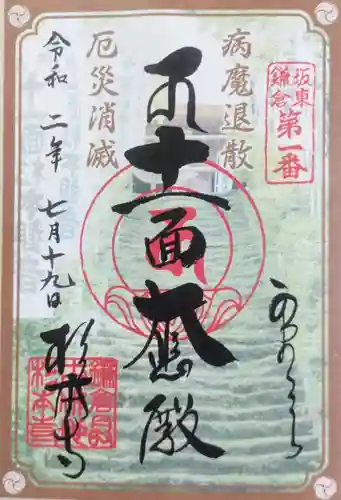 病魔退散
厄災消滅
坂東
鎌倉
第一番
十一面大悲殿
令和 二年 七月十九日
杉本寺